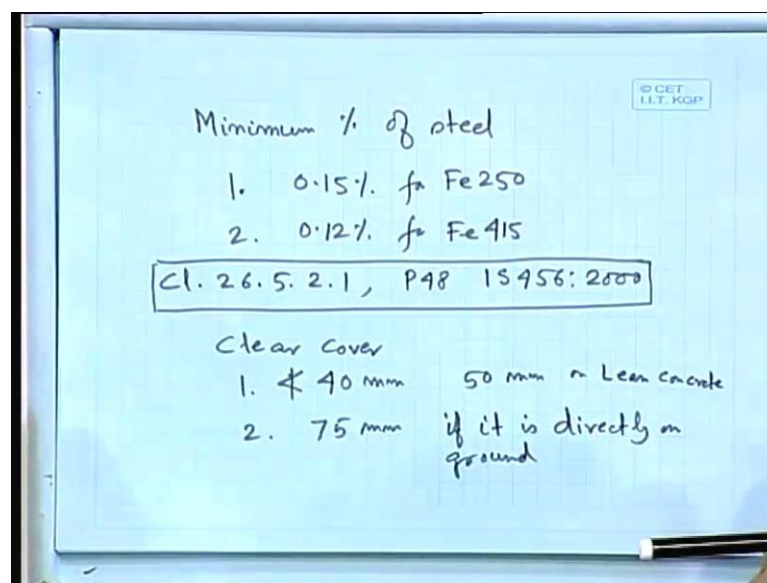 © CET
I.I.T. KGP
Minimum % of steel
1. 0.15%. for Fe 250
2. 0.12%. for Fe 415
Cl. 26.5.2.1, P48 IS 456: 2000
Clear Cover
1. ≮ 40 mm 50 mm on Lean Concrete
2. 75 mm if it is directly on
ground